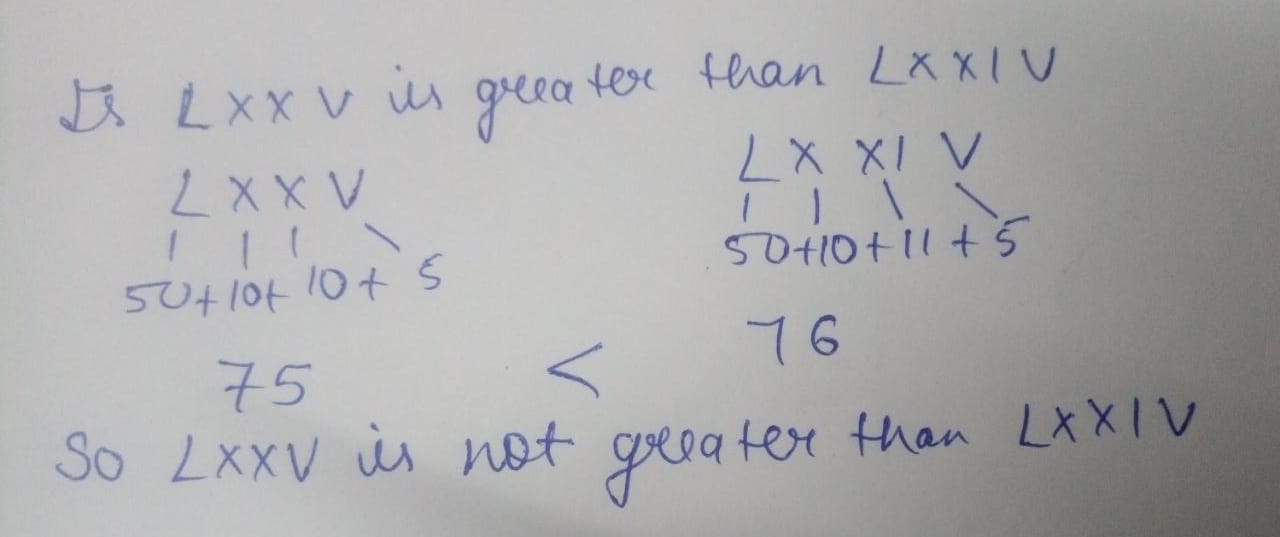 Is LXXV is greater than LXXIV
LXXV
LX XI V
50+10+10+5
50+10+11+5
75 < 76
So LXXV is not greater than LXXIV